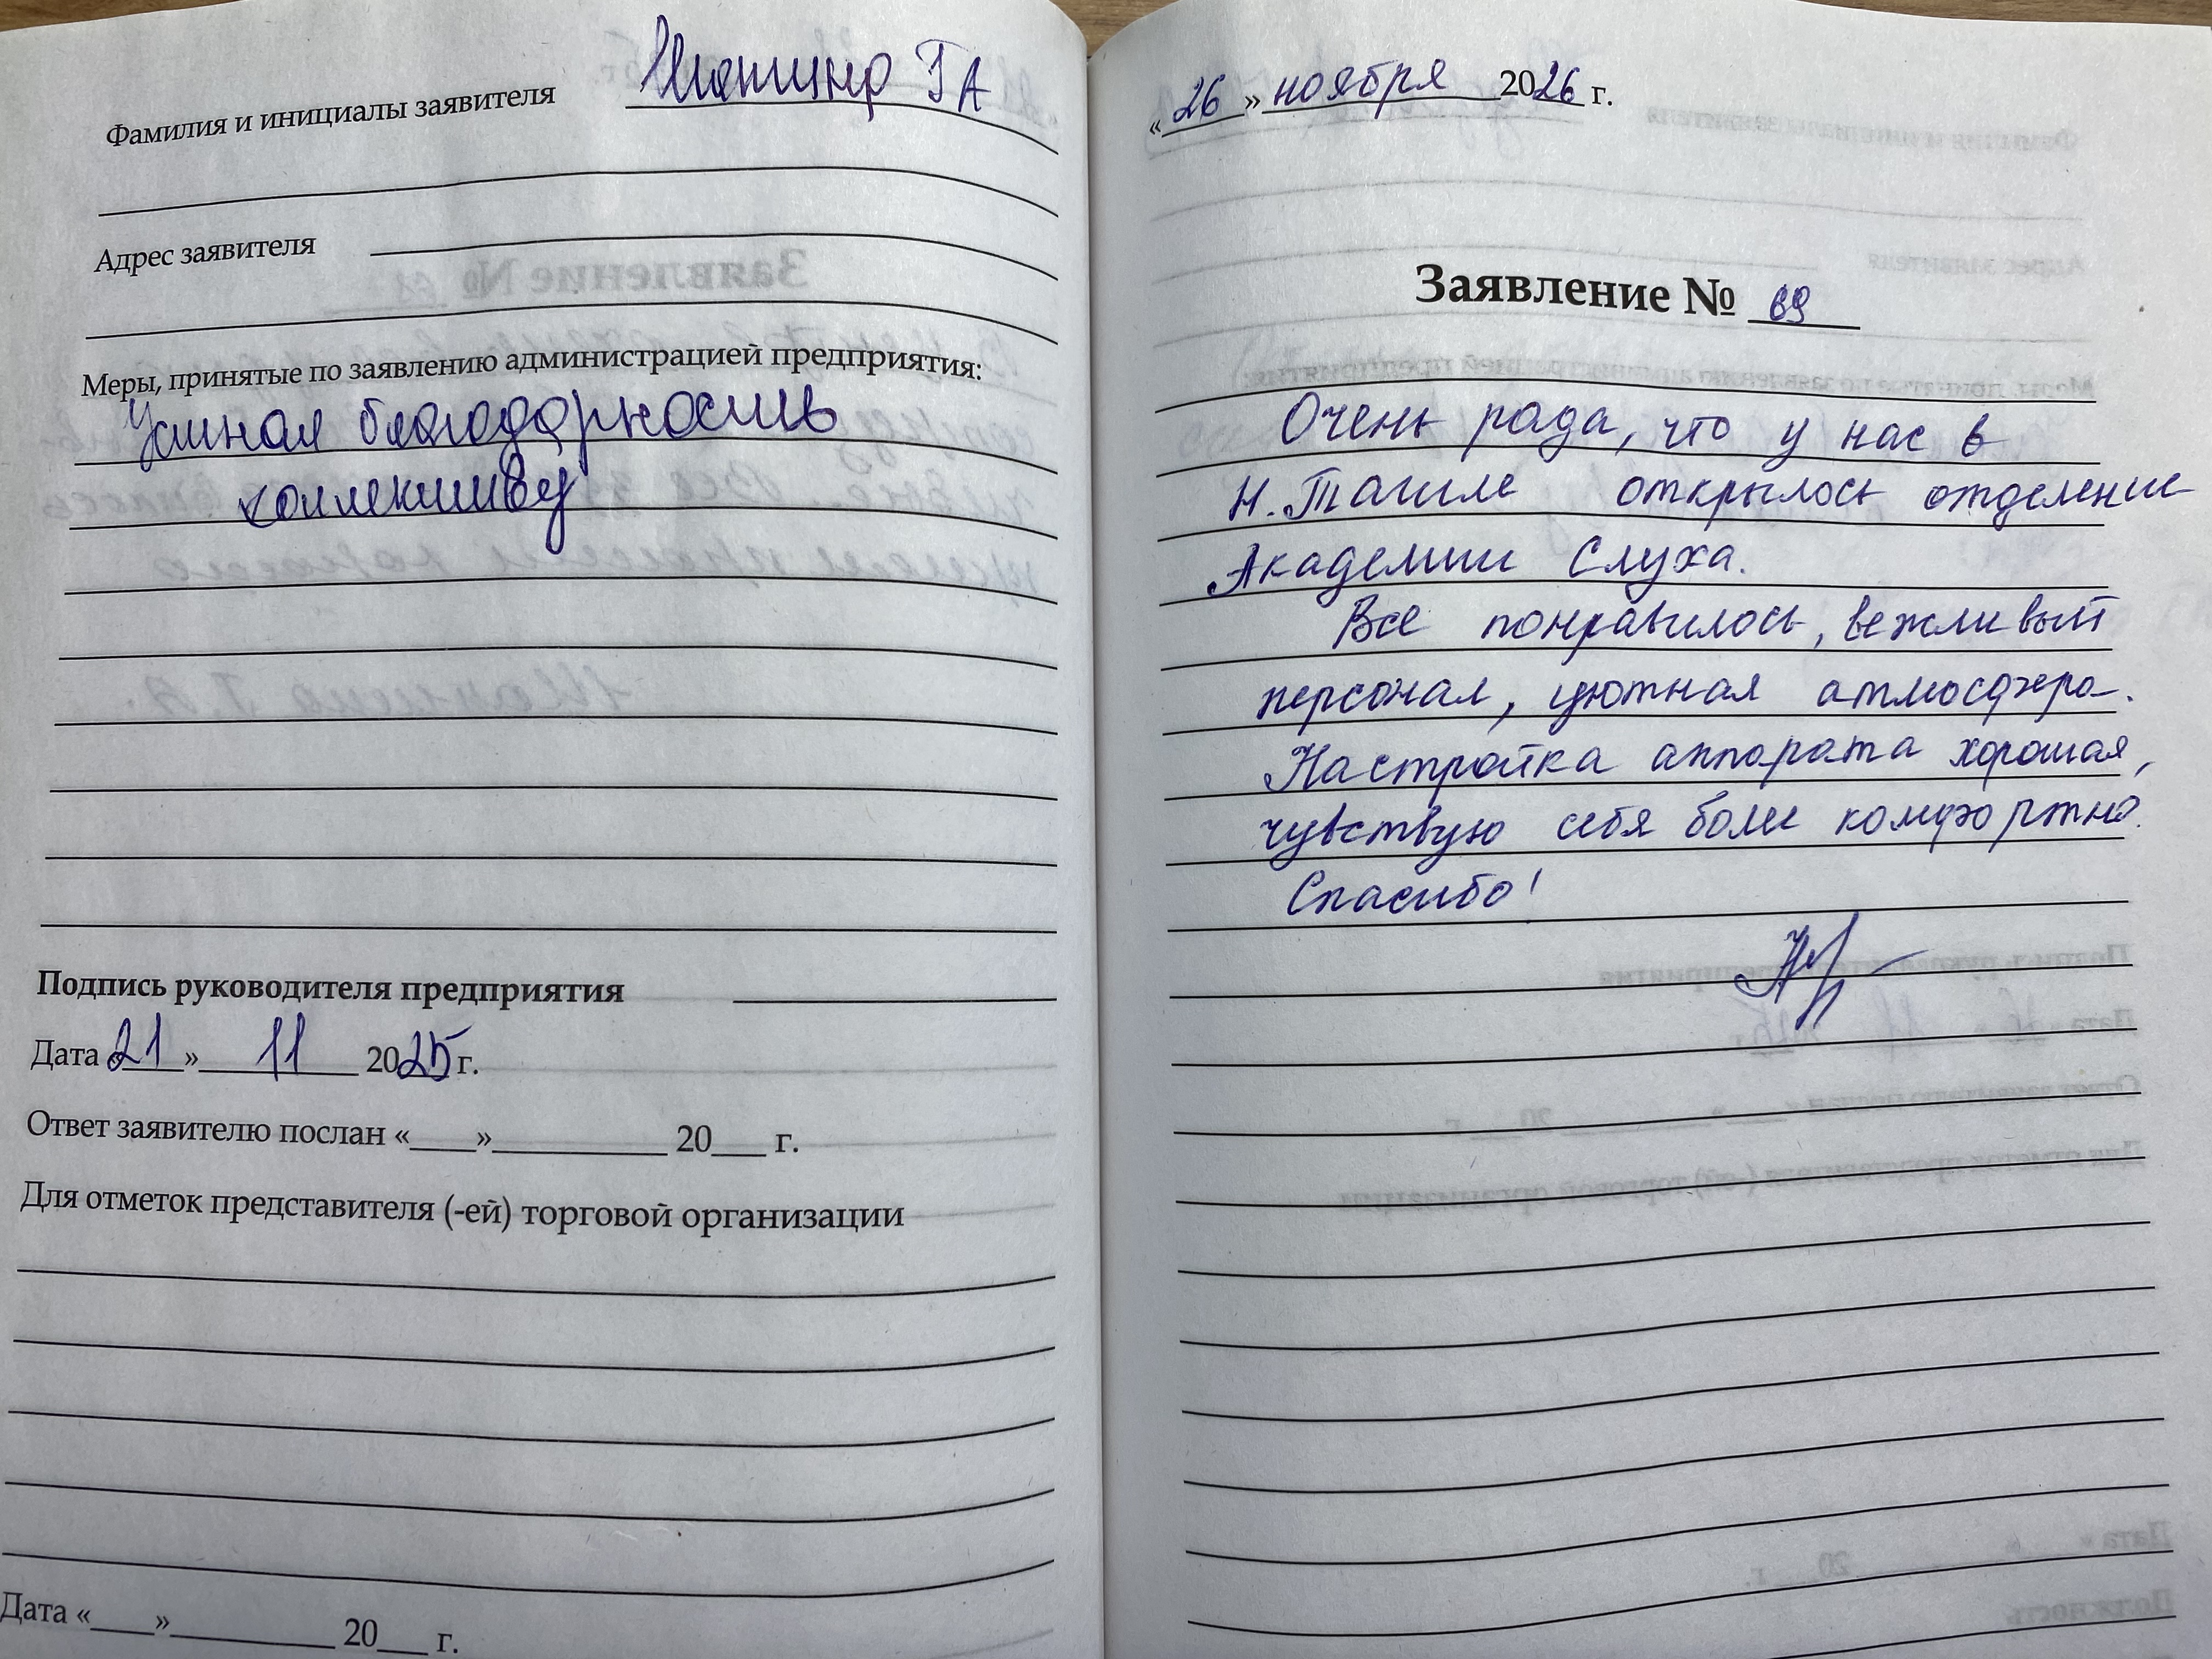 Фамилия и инициалы заявителя Шапина Г А
Адрес заявителя
Меры, принятые по заявлению администрацией предприятия:
Устная благодарность
коллективу
Подпись руководителя предприятия
Дата «21» 11 2025 г.
Ответ заявителю послан «____»__________ 20___ г.
Для отметок представителя (-ей) торговой организации
Дата «____»__________ 20___ г.
«26» ноября 2026 г.
Заявление № 69
Очень рада, что у нас в
Н. Тагиле открылось отделение
Академии Слуха.
Все понравилось, вежливый
персонал, уютная атмосфера.
Настройка аппарата хорошая,
чувствую себя более комфортно.
Спасибо!